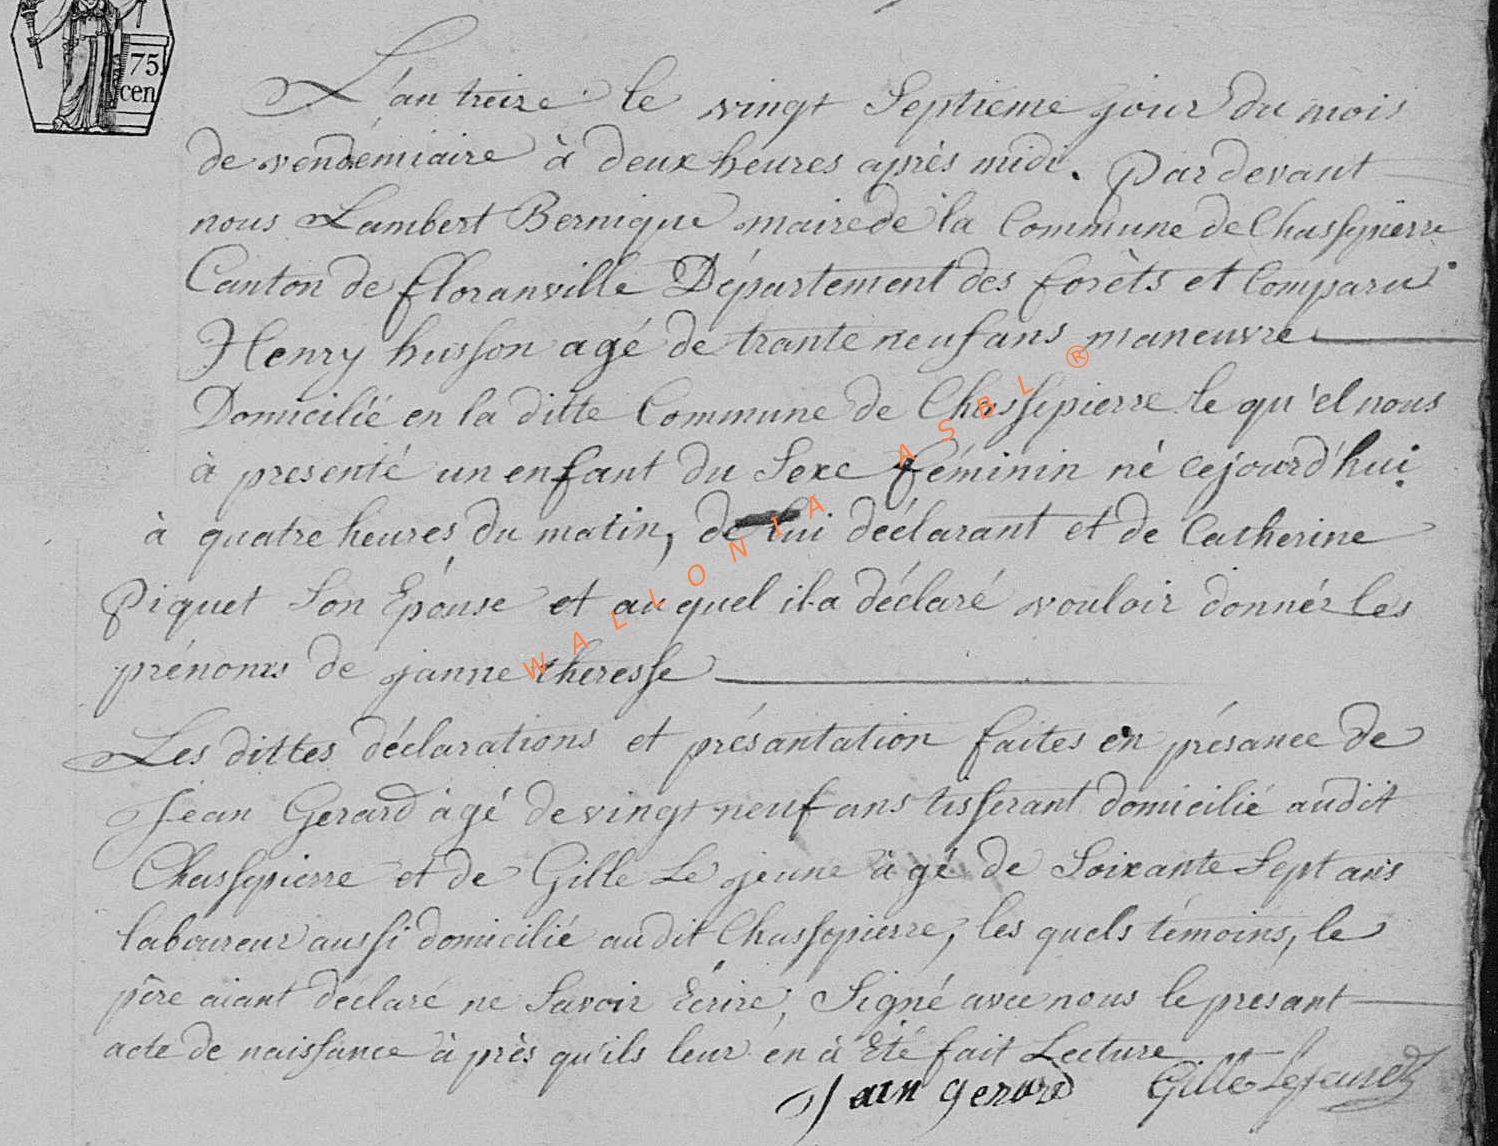 75
cen
L'an treize le vingt Septieme jour du mois
de vendémiaire à deux heures après midi. Pardevant
nous Lambert Bernique maire de la Commune de Chassepierre
Canton de floranville Département des forèts et Comparu
Henry husson agé de trante neuf ans maneuvre
Domicilié en la ditte Commune de Chassepierre le qu'el nous
à presenté un enfant du Sexe féminin né cejourd'hui
à quatre heures du matin, de lui déclarant et de Catherine
Piquet Son Epouse et auquel il a déclaré vouloir donnér les
prénoms de janne theresse
Les dittes déclarations et présantation faites en présance de
Jean Gerard àgé de vingt neuf ans tisserant domicilié audit
Chassepierre et de Gille Le jeune àgé de Soixante Sept ans
laboureur aussi domicilié audit Chassepierre, les quels témoins, le
père aiant déclaré ne Savoir Ecrire, Signé avec nous le presant
acte de naissance à près qu'ils leur en à Eté fait Lecture
Jain gerard Gille Lejeune
WALLONIA ASBL ®